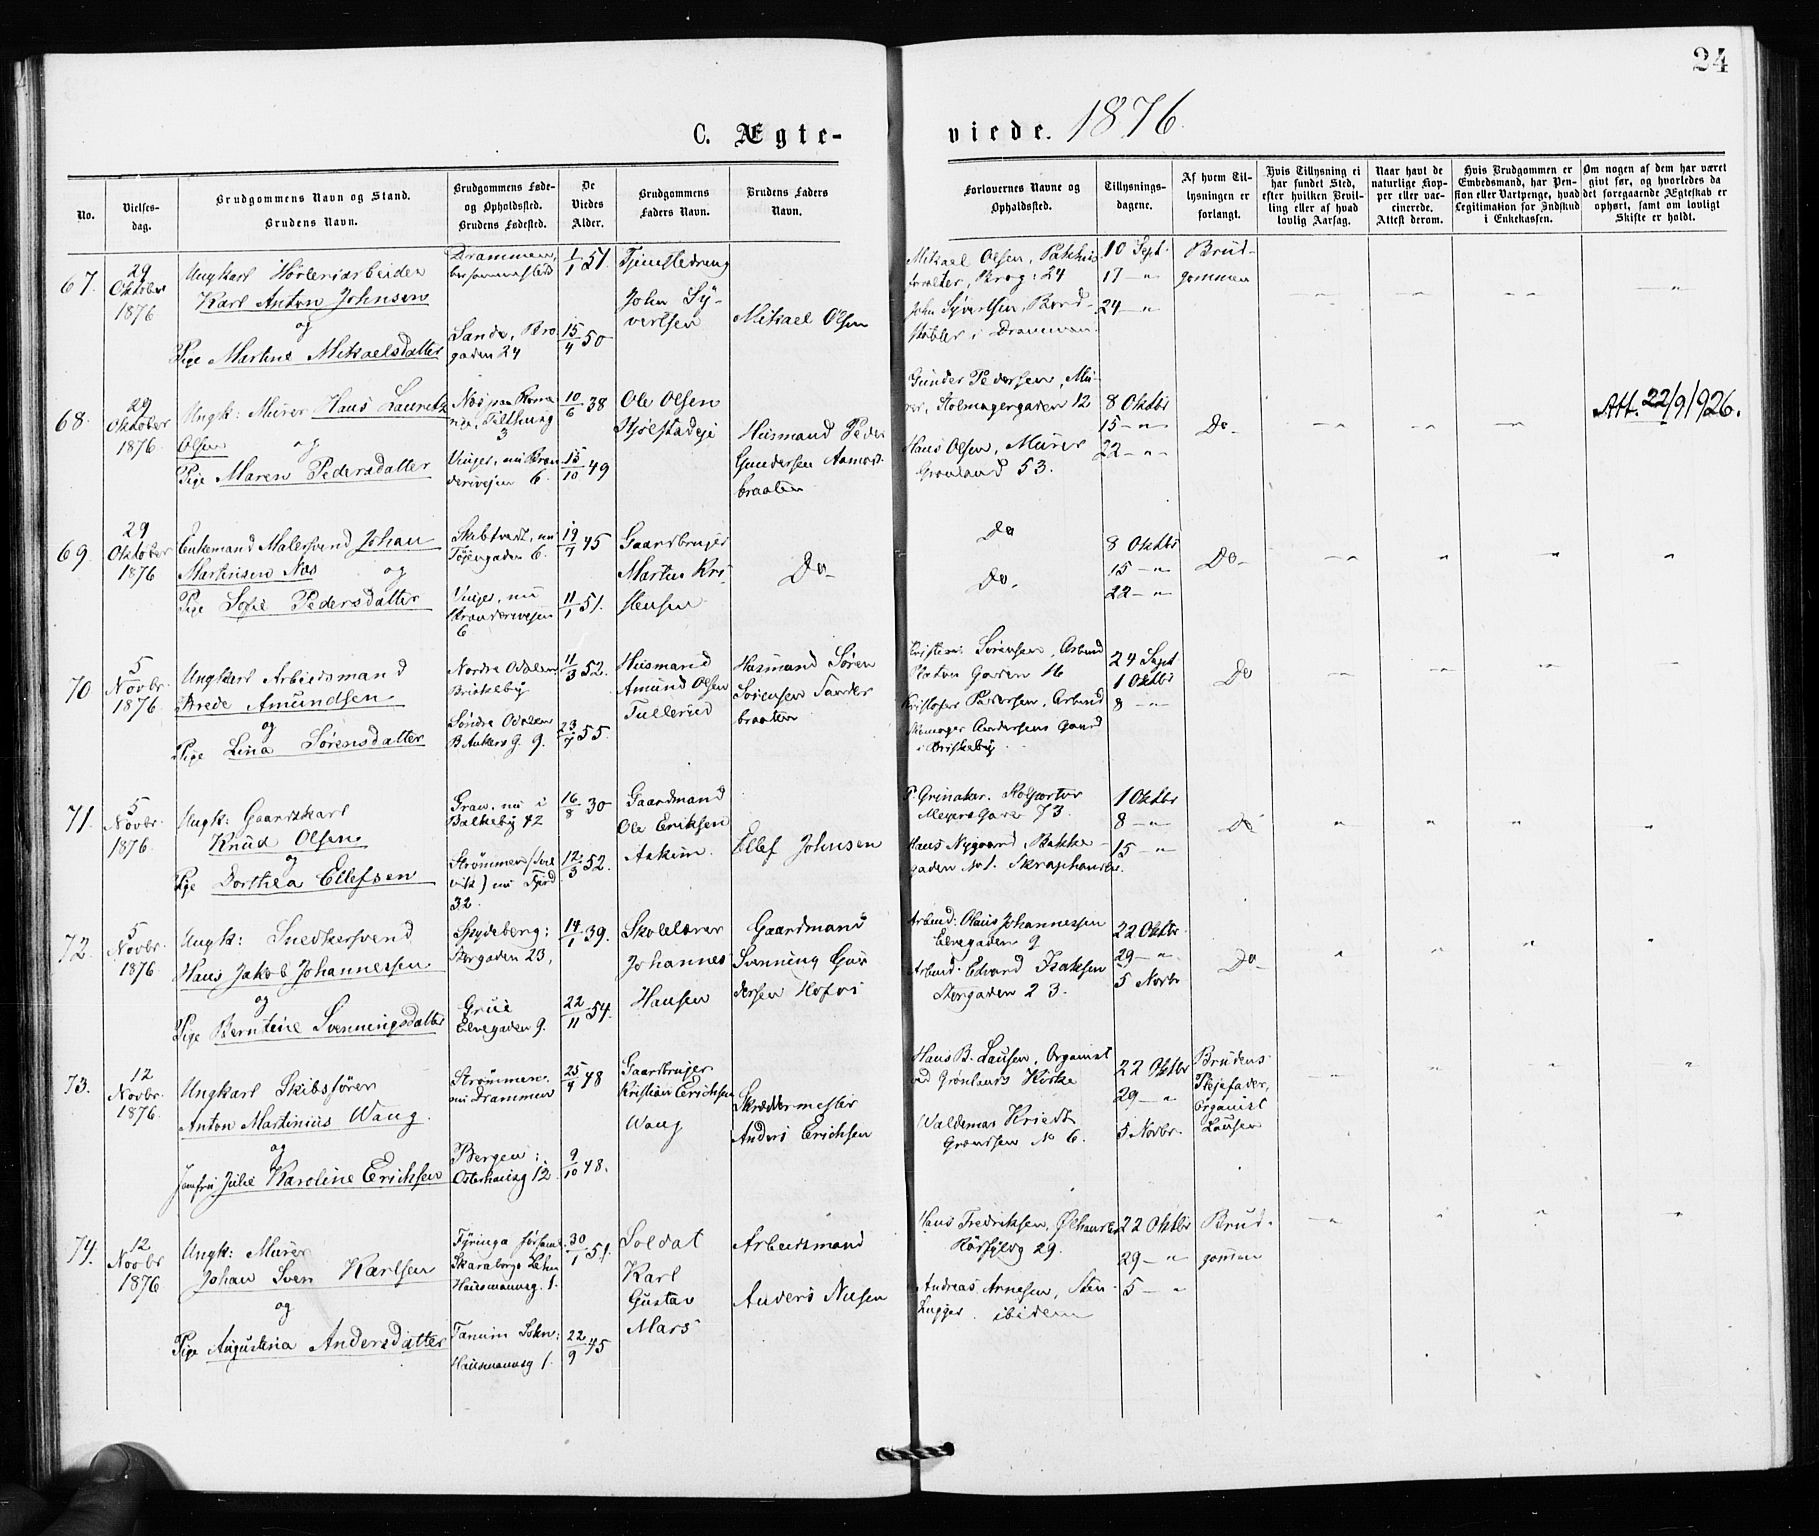 24
C. Ægte-
viede. 1876.
No.
Vielses-
dag.
Brudgommens Navn og Stand.
Brudens Navn.
Brudgommens Føde-
og Opholdssted.
Brudens Fødested.
De
Viedes
Alder.
Brudgommens
Faders Navn.
Brudens Faders
Navn.
Forlovernes Navne og
Opholdssted.
Tillysnings-
dagene.
Af hvem Til-
lysningen er
forlangt.
Hvis Tillysning ei
har fundet Sted,
efter hvilken Bevil-
ling eller af hvad
lovlig Aarsag.
Naar havt de
naturlige Kop-
per eller vac-
cinerede.
Attest derom.
Hvis Brudgommen er
Embedsmand, har Pen-
sion eller Vartpenge, hvad
Legitimation for Indskud
i Enkekassen.
Om nogen af dem har været
givt før, og hvorledes da
det foregaaende Ægteskab er
ophørt, samt om lovligt
Skifte er holdt.
67.
29
Oktober
1876
Ungkarl
Karl Anton Johnsen
og
Pige Martine Mikaelsdatter
Drammen,
Sande, Bro
gaden 24
1/1 51.
15/4 50
John Sy-
vertsen
Mikael Olsen
Mikael Olsen,
24
John Syvertsen,
i Drammen.
10 Sept.
17 - "
24 - "
Brud-
gommen
68.
29
Oktober
1876.
Ungk: Murer Hans Lauritz
Olsen
og
Pige Maren Pedersdatter
3
Vinger, nu
6.
10/6 38
15/10 49
Ole Olsen
Husmand Peder
Gundersen
braaten
Gunder Pedersen, Mu-
rer, Holmagergaden 12
Hans Olsen, Murer
Grønland 53.
8 Oktbr
15 - "
22 - "
Do-
Att. 22/9 1926.
69.
29
Oktober
1876
Enkemand Malersvend Johan
Martinsen Næs
og
Pige Sofie Pedersdatter
Tøiengaden 6.
Vinger, nu
6
19/7 45
11/1 51.
Gaardbruger
Martin Kri-
stensen
Do-
Do
Do.
8 Oktbr
15 - "
22 - "
Do-
70
5
Novbr.
1876.
Ungkarl Arbeidsmand
Brede Amundsen
og
Pige Lina Sørensdatter
Nordre Odalen
Briskeby
Søndre Odalen
B. Ankers G. 9.
11/3 52.
23/7 55.
Husmand
Amund Olsen
Tullerud
Husmand Søren
Sørensen
braaten
Sørensen, Arbmd
Gaden 16
Kristofer Pedersen, Arbmd
Andersens Gaard
i Briskeby
24 Sept
1 Oktbr
8 - "
Do
71.
5
Novbr.
1876.
Ungk: Gaardskarl
Knud Olsen
og
Pige Dorthea Ellefsen
Gran, nu i
Balkeby 42
Strømmen
32.
16/8 30
12/3 52.
Gaardmand
Ole Eriksen
Askim.
Ellef Johnsen
P. Grinaker. Kolportør
Meyers Gade 73.
Hans Nygaard, Bakke-
gaden No 1.
1 Oktbr
8 - "
15 - "
Do
72.
5
Novbr.
1876
Ungk: Snedkersvend
Hans Jakob Johannessen
og
Pige Berntine Svenningsdatter
Spydeberg:
Storgaden 23,
Grue
Elvegaden 9.
14/1 39.
22/11 54.
Skolelærer
Johannes
Hansen
Gaardmand
Svenning Gun
dersen Hofos
Arbmd: Olaus Johannessen
Elvegaden 9
Arbmd: Edvard Isaksen
Storgaden 23.
22 Oktbr.
29 - "
5 Novbr
Do-
73.
12
Novbr.
1876.
Ungkarl Skibsfører
Anton Martinius Wang.
og
Jomfru Julie Karoline Erichsen
Strømmen,
nu Drammen
Bergen:
Osterhausg 12
25/4 48
9/10 48.
Gaardbruger
Kristian Erichsen
Wang
Skreddermester
Anders Erichsen
Hans B. Lausen, Organist
ved Grønlands Kirke
Waldemar
No 6.
22 Oktbr
29 - "
5 Novbr.
Brudens
Plejefader,
Organist
Lausen
74.
12
Novbr
1876
Ungk: Murer
Johan Sven Karlsen
og
Pige Augustina Andersdatter
Skaraborgs Lehn
Hausmannsg. 1.
Tanum Sokn:
Hausmannsg 1.
30/1 51.
22/9 45
Soldat
Karl
Gustav
Mars
Arbeidsmand
Anders Nielsen
Hans Fredriksen,
29.
Andreas Arnesen, Sten-
hugger. ibidem
22 Oktbr
29 - "
5 - "
Brud-
gommen